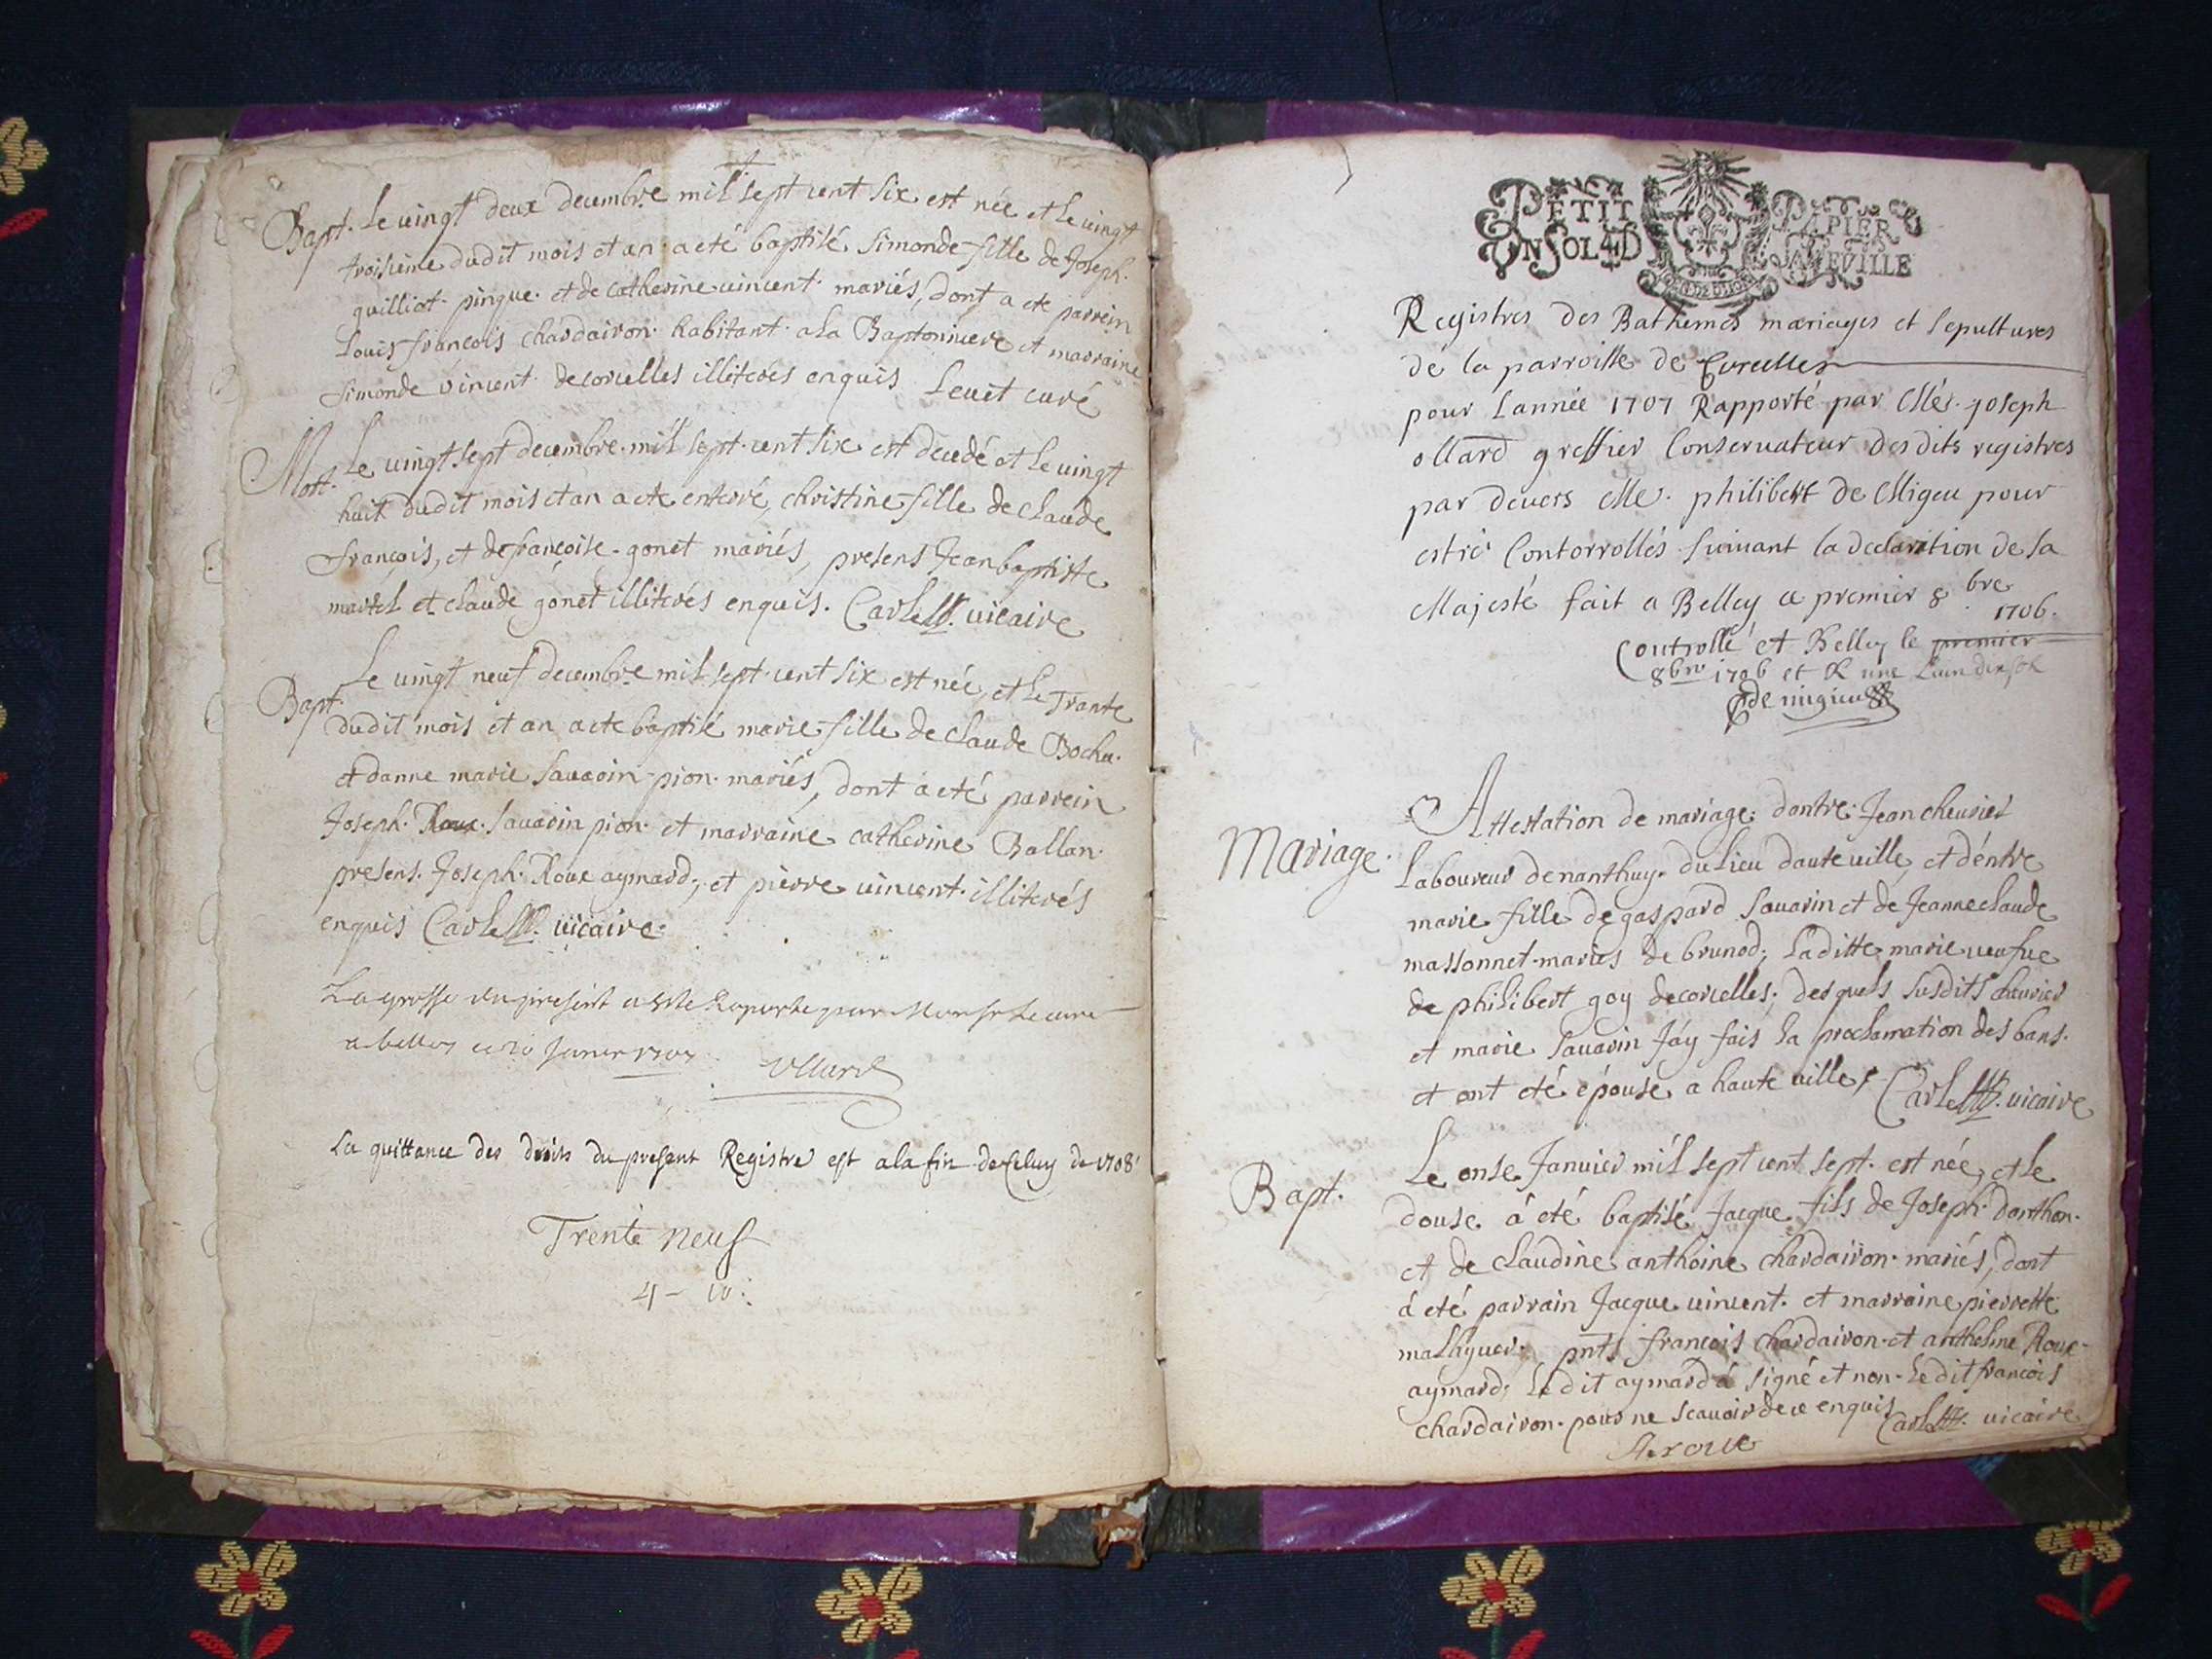 Bapt. Le vingt deux decembre mil sept cent six est née et le vingt
troisieme dudit mois et an a eté baptisé Simonde fille de Joseph
quilliot pinque et de catherine vincent mariés, dont a eté parrein
Louis françois chardairon habitant a la Baptonniere et marraine
Simonde vincent de corcelles illiterés enquis Levet curé
Mort. Le vingt sept decembre mil sept cent six est decedé et le vingt
huit dudit mois et an a eté enterré, christine fille de claude
françois, et de françoise gonet mariés, presens Jean baptiste
martel et claude gonet illiterés enquis. vicaire
Bapt. Le vingt neuf decembre mil sept cent six est née, et le Trante
dudit mois et an a eté baptisé marie fille de claude Bochu
et danne marie Savarin pion mariés, dont a eté parrein
Joseph Roux Savarin pion et marraine catherine Ballan
presens Joseph Roux aymard, et pierre vincent illiterés
enquis vicaire
La grosse du present a esté Raporte par
a belley ce 20 Janvier 1707
ollard
La quittance des droits du present Registre est a la fin de celuy de 1708
Trente neuf
PETIT PAPIER
UN SOL 4 D LA FEVILLE
Registres des Bathemes mariages et Sepultures
de la parroisse de Corcelles
pour Lannée 1707 Rapporté par Me. Joseph
ollard greffier Conservateur desdits registres
par devers Me. philibert de Migeu pour
estre Contorrollés suivant la declaration de Sa
Majesté fait a Belley ce premier 8bre
1706.
Controllé et Belley le premier
8bre 1706 et R
de migieu
Mariage. Attestation de mariage dontre Jean chevrier
Laboureur de nanthuy du Lieu dauteville, et déntre
marie fille de gaspard Savarin et de Jeanne claude
massonnet mariés de brunod, Laditte marie veufve
de philibert goy de corcelles, desquels susdits chevrier
et marie Savarin J'ay fais la proclamation des bans
et ont eté épousé a haute ville, vicaire
Bapt. Le onse Janvier mil sept cent sept est née, et le
douse á eté baptisé Jacque fils de Joseph danthon
et de claudine anthoine chardairon mariés, dont
á eté parrain Jacque vincent et marraine pierrette
malhyuer pnts françois chardairon et anthelme Roux
aymard, Ledit aymard á signé et non Ledit françois
chardairon pour ne scavoir de ce enquis vicaire
A roux